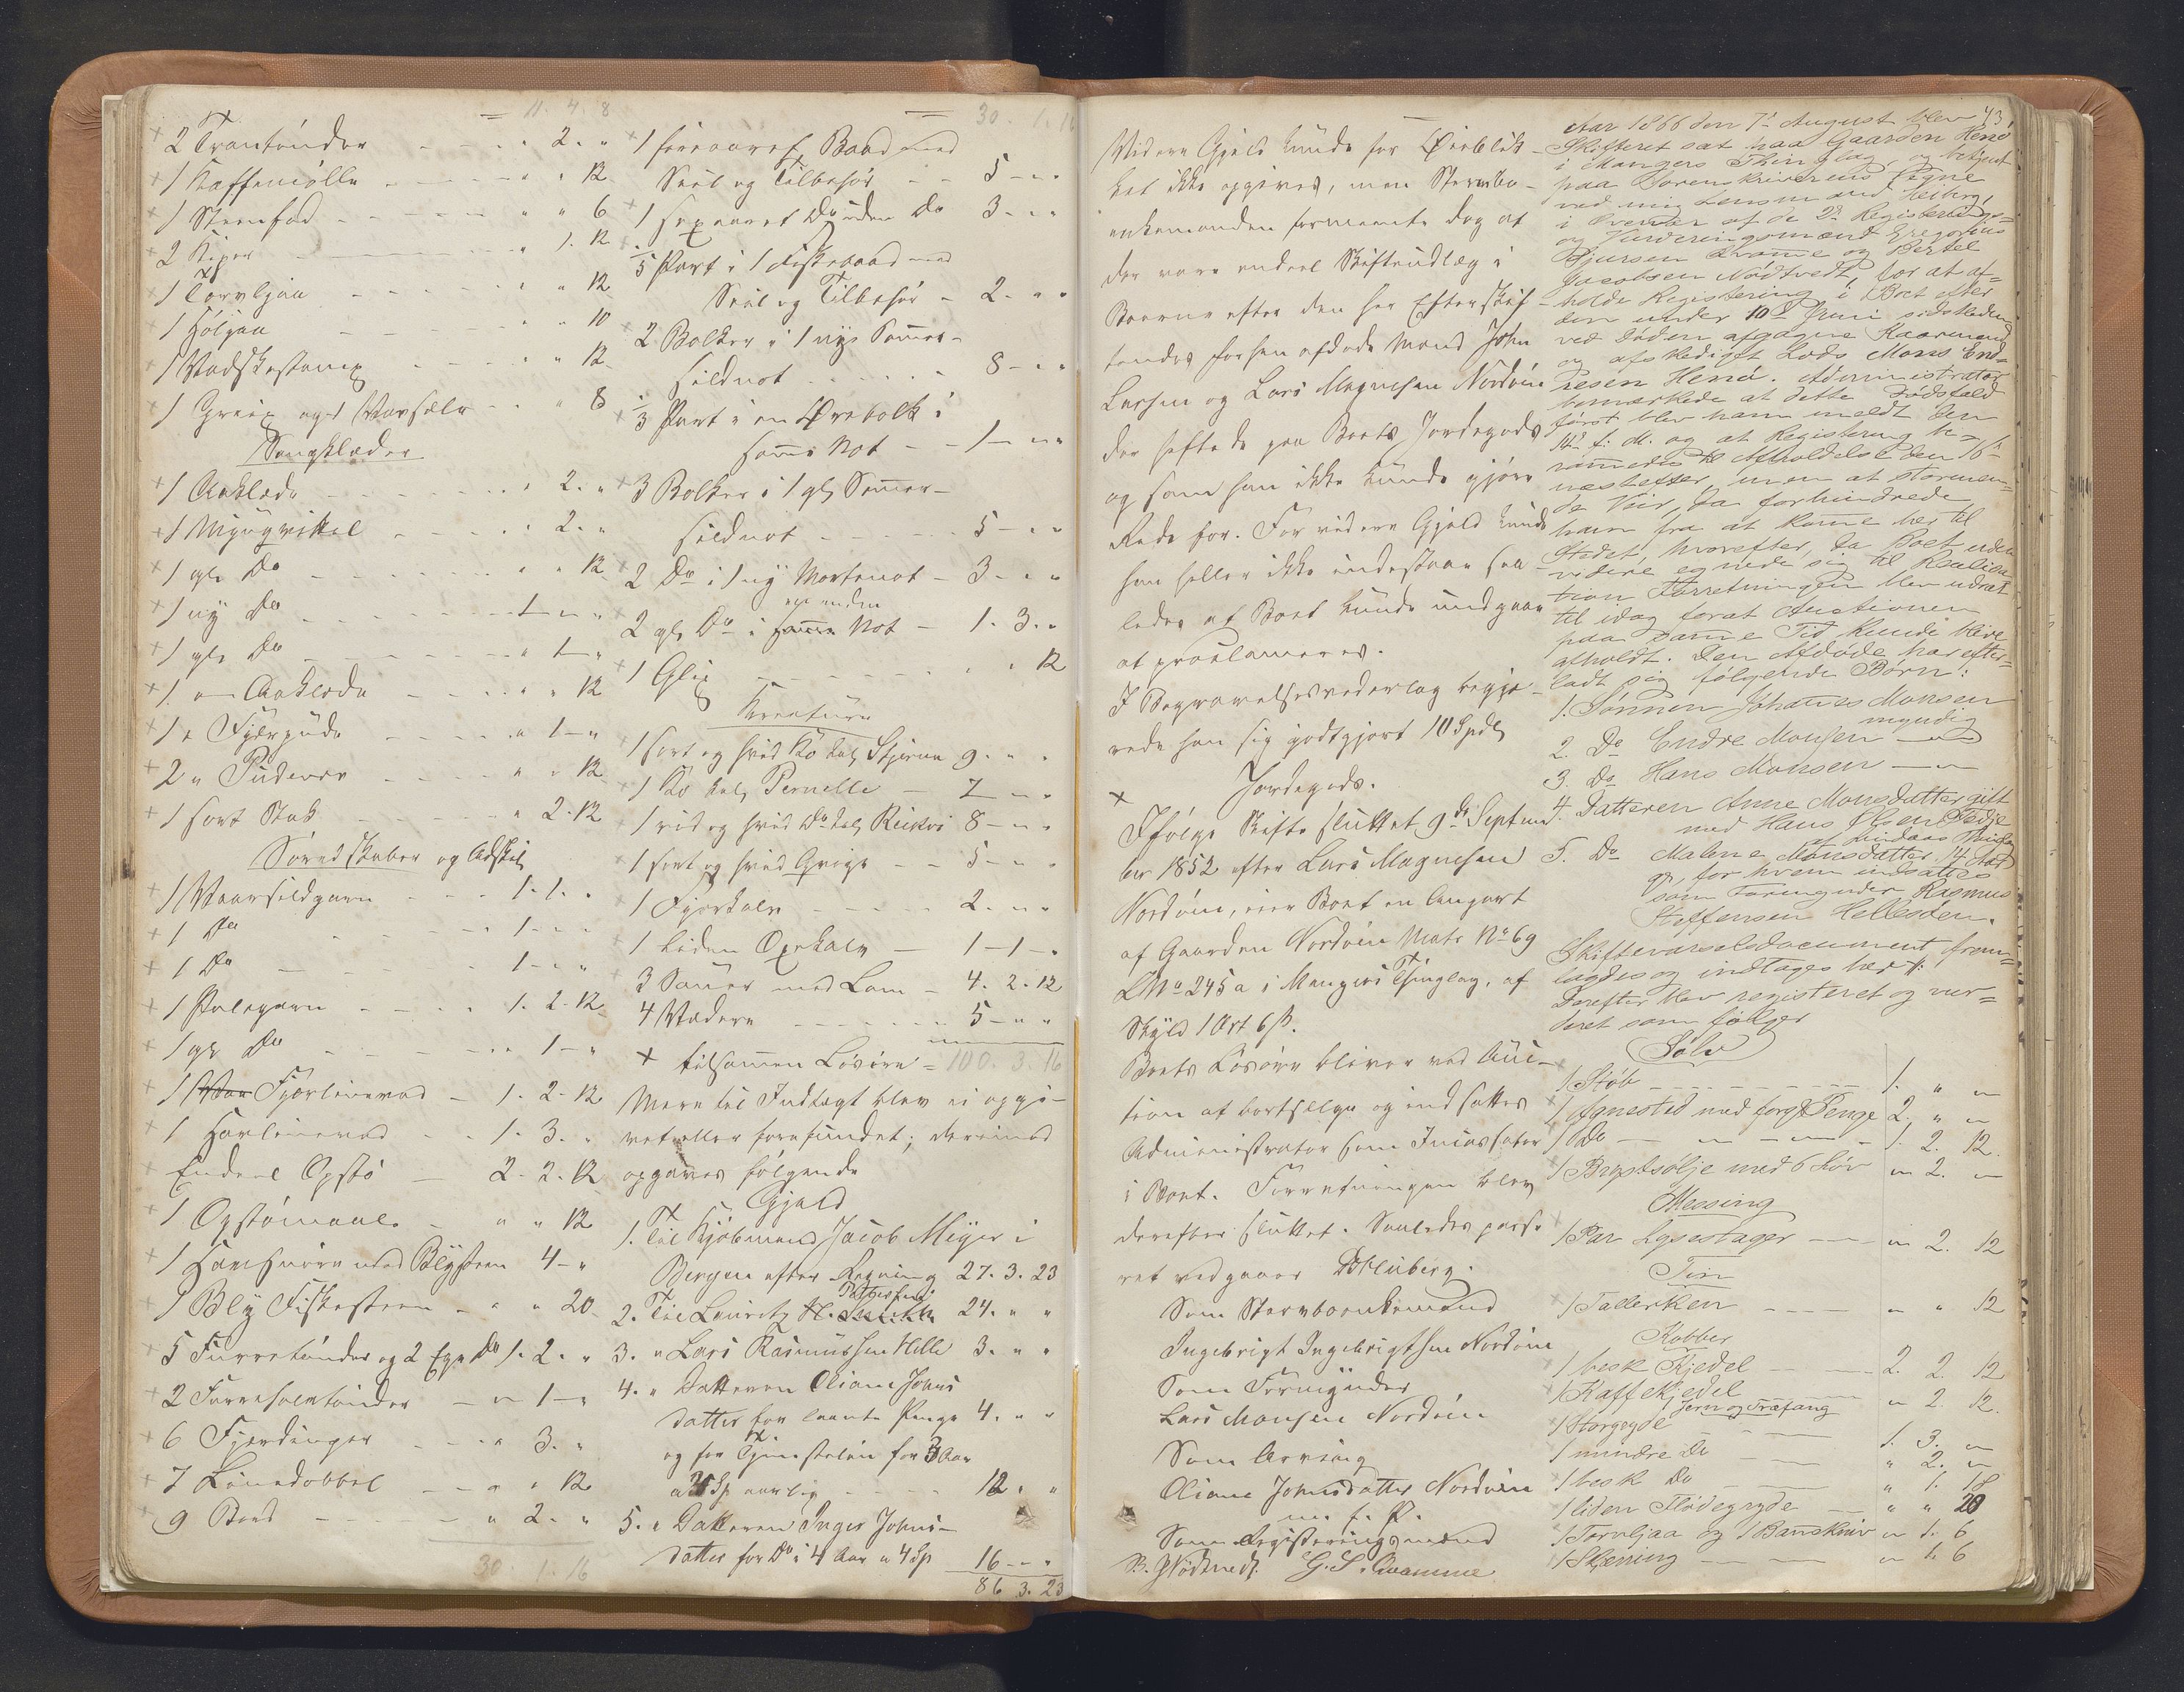 11. 4. 8
2 Trantønder - - - " 2. "
1 Kaffemølle - - - " " 12
1 Steenfad - - - " " 6
2 Kiper - - - " 1. 12
1 Torvljaa - - - " " 12
1 Høljaa - - - " " 10
1 Vadskestamp - - - " " 12
1 Greip og 1 - - " " 8
Sengklæder
1 Aaklæde - - - " 2. "
1 - - - " 2. "
1 gl. Do - - - " " 12
1 ny Do - - - 1 - " "
1 gl. Do - - - " 1 - "
1 " Aaklæde - - - " " 12
1 " Fjærpude - - - " 1 - "
2 " Pudevar - - - " " 12
1 sort Stak - - - " 2. 12
Søredskaber og Adskil.
1 Vaarsildgarn - - - 1. 1. "
1 Do - - - 1 - - "
1 Do - - - 1 - " "
1 Palegarn - - - 1. 2. 12
1 gl. Do - - - " 1 - "
1 Fjærlinevad - 1. 2. 12
1 Harlinevad - - 1. 3. "
Endeel Opstø - 2. 2. 12
1 Opstømaal - " " 12
1 Havsnøre med Blysteen 4 - "
1 Bly Fiskesteen - " " 20
5 Furretønder og 2 Ege Do 1. 2. "
2 Furrehalvtønder - " 1 - "
6 Fjerdinger - - " 3. "
7 Linedobbel - - " " 12
9 Bord - - - " 2. "
30. 1. 16
30. 1. 16
1 Baad med
Seil og Tilbehør - - 5 - " "
1 sexaaret Do uden Do 3 - " "
1/5 Part i 1 Fiskebaad med
Seil og Tilbehør - 2 - " "
2 Bolker i 1 nye Sommer-
sildnot - - - 8 - " "
1/3 Part i en Ørebolk i
samme Not - - 1 - " "
3 Bolker i 1 gl. Sommer-
sildnot - - - 5 - " "
2 Do i 1 ny Mortenot - 3 - " "
en anden
2 gl. Do i samme Not - 1. 3. "
1 Glip - - - " " 12
Kreature
1 sort og hvid Ko kal. Stjerna 9. " "
1 Ko kal. Pernelle - 7 - " "
1 rød og hvid Do kal. 8 - " "
1 sort og hvid Qvige - - 5 - " "
1 Fjorkalv - - - 2. " "
1 liden Oxekalv - 1 - 1 - "
3 Sauer med Lam - 4. 2. 12
4 Vædere - - - 5 - " "
tilsammen Løsøre = 100. 3. 16
Mere til Indtægt blev ei opgi-
vet eller forefundet; derimod
opgaves følgende
Gjæld
1. Til Kjøbmand Jacob Meyer i
Bergen efter Regning 27. 3. 23
2. Til Lauritz H. 24. " "
3. " Lars Rasmussen Helle 3. " "
4. " Datteren Oliane Johns
datter for laante Penge 4. " "
og for Tjenesteløn for 3 Aar
aarlig - - - 12. " "
5. " Datteren Inger Johns-
datter for Do i 4 Aar a 4 Sp 16 - " "
86 3. 23
Videre Gjæld kunde for Øieblik-
ket ikke opgives, men Stervbo-
enkemanden formeente dog at
der vare endeel Skifteudlæg i
Boerne efter den her Efterskif-
tendes forhen afdøde Mænd John
Larsen og Lars Magnesen Nordøen
der heftede paa Boets Jordegods
og som han ikke kunde gjøre
Rede for. For videre Gjæld kunde
han heller ikke indestaae saa-
ledes at Boet kunde undgaae
at proclameres.
I Begravelsesvederlag begjæ-
rede han sig godtgjort 10 Spdlr
Jordegods.
Ifølge Skifte sluttet 9de Septem-
ber 1852 efter Lars Magnesen
Nordøen, eier Boet en Anpart
af Gaarden Nordøen Matr. No 69
L No 245 a i Mangers Thinglag, af
Skyld 1 Ort 6 ß.
Boets Løsøre bliver ved Auc-
tion at bortsælge og indsattes
Administrator som Incassator
i Boet. Forretningen blev
derefter sluttet. Saaledes passe-
ret vedgaaer Heiberg.
Som Stervboenkemand
Ingebrigt Ingebrigtsen Nordøen
Som Formynder
Lars Monsen Nordøen
Som Arving
Oliane Johnsdatter Nordøen
m. f. P.
Som Registeringsmænd
B. J. Nødtvedt. G. S. Qvamme
43
Aar 1866 den 7de August blev
Skifteret sat paa Gaarden Henø
i Mangers Thinglag, og betjent
paa Sorenskriverens Vegne
ved mig Lensmand Heiberg,
i Overvær af de 2de Registerings-
og Vurderingsmænd Gregorius
Sjursen Qvamme og Bertel
Jacobsen Nødtvedt, for at af-
holde Registering i Boet efter
den under 10de Juni sidstleden
ved Døden afgangne Kaarmand
og afskediget Lods Mons End-
resen Henø. Administrator
bemærkede at dette Dødsfald
først blev ham meldt den
14de f. M. og at Registering be-
rammedes til Afholdelse den 16de
næstefter, men at stormen-
de Veir, da forhindrede
ham fra at komme her til
Stedet, hvorefter, da Boet uden
videre egnede sig til Realisa-
tion Forretningen blev udsat
til idag forat Auctionen
paa samme Tid kunde blive
afholdt. Den Afdøde har efter-
ladt sig følgende Børn:
1. Sønnen Johannes Monsen
myndig
2. Do Endre Monsen - " -
3. Do Hans Monsen - " -
4. Datteren Anne Monsdatter gift
med Hans Olsen
af Lindaas
5. Do Malene Monsdatter 14 Aar
gl., for hvem indsattes
som Formynder Rasmus
Steffensen Hellesøen.
Skiftevarselsdocument frem-
lagdes og indtages her
Derefter blev registeret og vur-
deret som følger
Sølv
1 Støb - - - 1. " "
1 Agnested med forgt. Penge 2. " "
1 Do - " - " - 1. 2. 12.
1 Brystsølje med 6 Løv " 2. "
Messing
1 Par Lysestager - " 2. 12
Tin
1 Tallerken - - - " " 12
Kobber
1 besk. Kjedel - - 2. 2. 12
1 Kaffekjedel - " 2. 12.
Jern og Træfang
1 Storgryde - - 1. 3. "
1 mindre Do - " 2. "
1 besk. Do - " 1. 18
1 liden Flødegryde - " " 20
1 Torvljaa og 1 Bandkniv " 1. 6
1 Skjerring - - " 1. 6